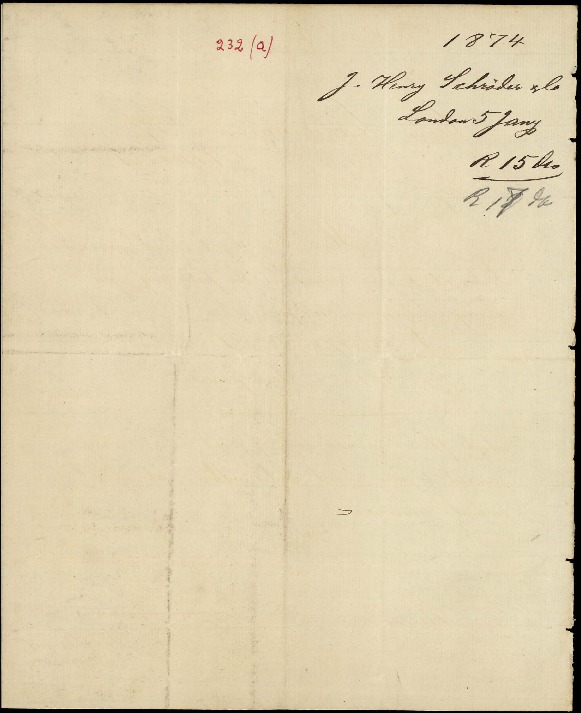 232 (a)
1874
J. Henry Schröder & Co
London 5 Jany
R 15 do
R 17 do